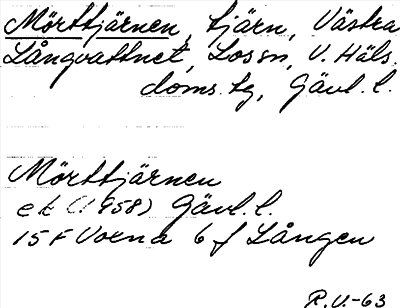 Mörttjärnen, tjärn, Västra
Långvattnet, Lossn, V. Häls.
doms. tg, Gävl. l.
Mörttjärnen
ek (1958) Gävl. l.
15 F Voxna 6 f Lången
R.V.-63